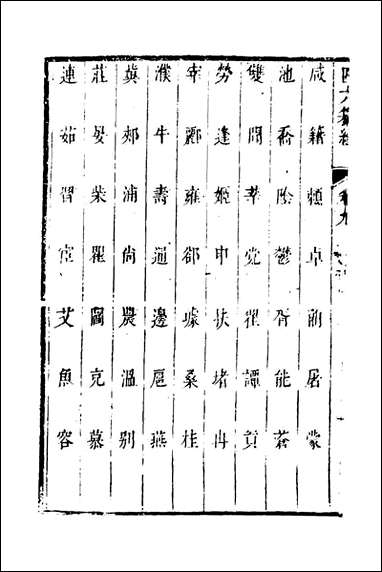 四六纂組 卷九
咸籍賴卓藺屠蒙
池喬陰鬱胥能蒼
雙聞莘党翟譚貢
勞逢姬申扶堵冉
宰酈雍郤璩桑桂
濮牛壽通邊扈燕
冀郟浦尚農溫别
莊晏柴瞿閻充慕
連茹習宦艾魚容